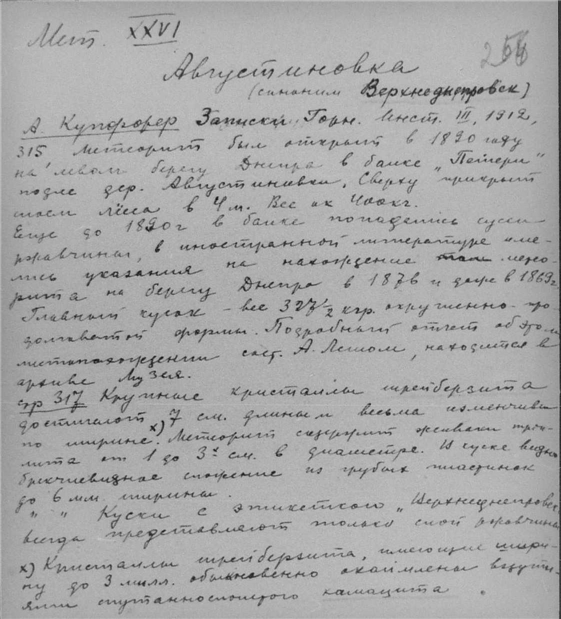 Мет. XXVI
Августиновка
(синоним Верхнеднепровск)
А. Купффер Записки Горн. Инст. III, 1912,
315 Метеорит был открыт в 1890 году
на левом берегу Днепра в балке
возле дер. Августиновки, Сверху прикрыт
лёсса в 4 м. Вес ок 400кг.
Еще до 1890г в балке попадались куски
ржавчины, в иностранной литературе име-
лись указания на нахождение метео-
рита на берегу Днепра в 1876 и даже в 1869г.
Главный кусок - вес 327 1/2 кгр. округленно-про-
долговатой формы. Подробный отчет об этом
местонахождении сост. А. находится в
архиве Музея.
стр 317 Крупные кристаллы шрейберзита
достигают 7 см. длины и весьма изменчивы
по ширине. x) Метеорит содержит желваки трои-
лита от 1 до 3х см. в диаметре. В куске видно
брекчиевидное сложение из грубых пластинок
до 6 мм. ширины.
" " Куски с этикеткой „Верхнеднепровск
всегда представляют только слой ржавчины
x) Кристаллы шрейберзита, имеющие шири-
ну до 3 милл. обыкновенно окаймлены
камасита